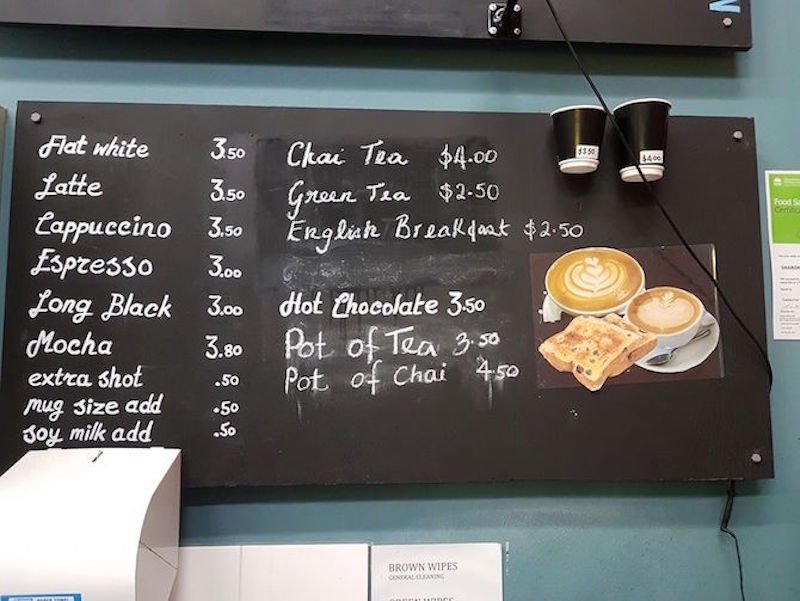 Flat white 3.50
Latte 3.50
Cappuccino 3.50
Espresso 3.00
Long Black 3.00
Mocha 3.80
extra shot .50
mug size add .50
soy milk add .50
Chai Tea $4.00
Green Tea $2.50
English Breakfast $2.50
Hot Chocolate 3.50
Pot of Tea 3.50
Pot of Chai 4.50
$3.50
$4.00
Food Sa
Certific
BROWN WIPES
GENERAL CLEANING
GREEN WIPES